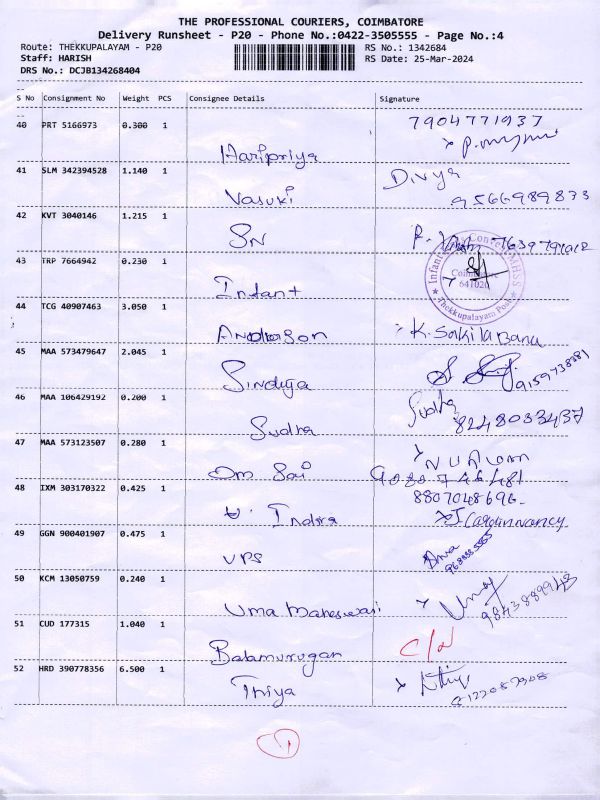 THE PROFESSIONAL COURIERS, COIMBATORE
Delivery Runsheet - P20 - Phone No.:0422-3505555 - Page No.:4
Route: THEKKUPALAYAM - P20 RS No.: 1342684
Staff: HARISH RS Date: 25-Mar-2024
DRS No.: DCJB134268404
S No Consignment No Weight PCS Consignee Details Signature
40 PRT 5166973 0.300 1 7904771937
Haripriya
41 SLM 342394528 1.140 1 Divya
Vasuki 9566989873
42 KVT 3040146 1.215 1
SN
43 TRP 7664942 0.230 1
Infant
Coimbatore
641020
Thekkupalayam Post
44 TCG 40907463 3.050 1
Anderson K. Sakila Banu
45 MAA 573479647 2.045 1
Sinduja 9159738381
46 MAA 106429192 0.200 1 Sudha
Sudha 8248033437
47 MAA 573123507 0.280 1
Om Sai 9080746481
48 IXM 303170322 0.425 1 8807048696
Indira
49 GGN 900401907 0.475 1
VPS
50 KCM 13050759 0.240 1
Uma Maheswari 9843889943
51 CUD 177315 1.040 1 C/N
Balamurugan
52 HRD 390778356 6.500 1
Thiya